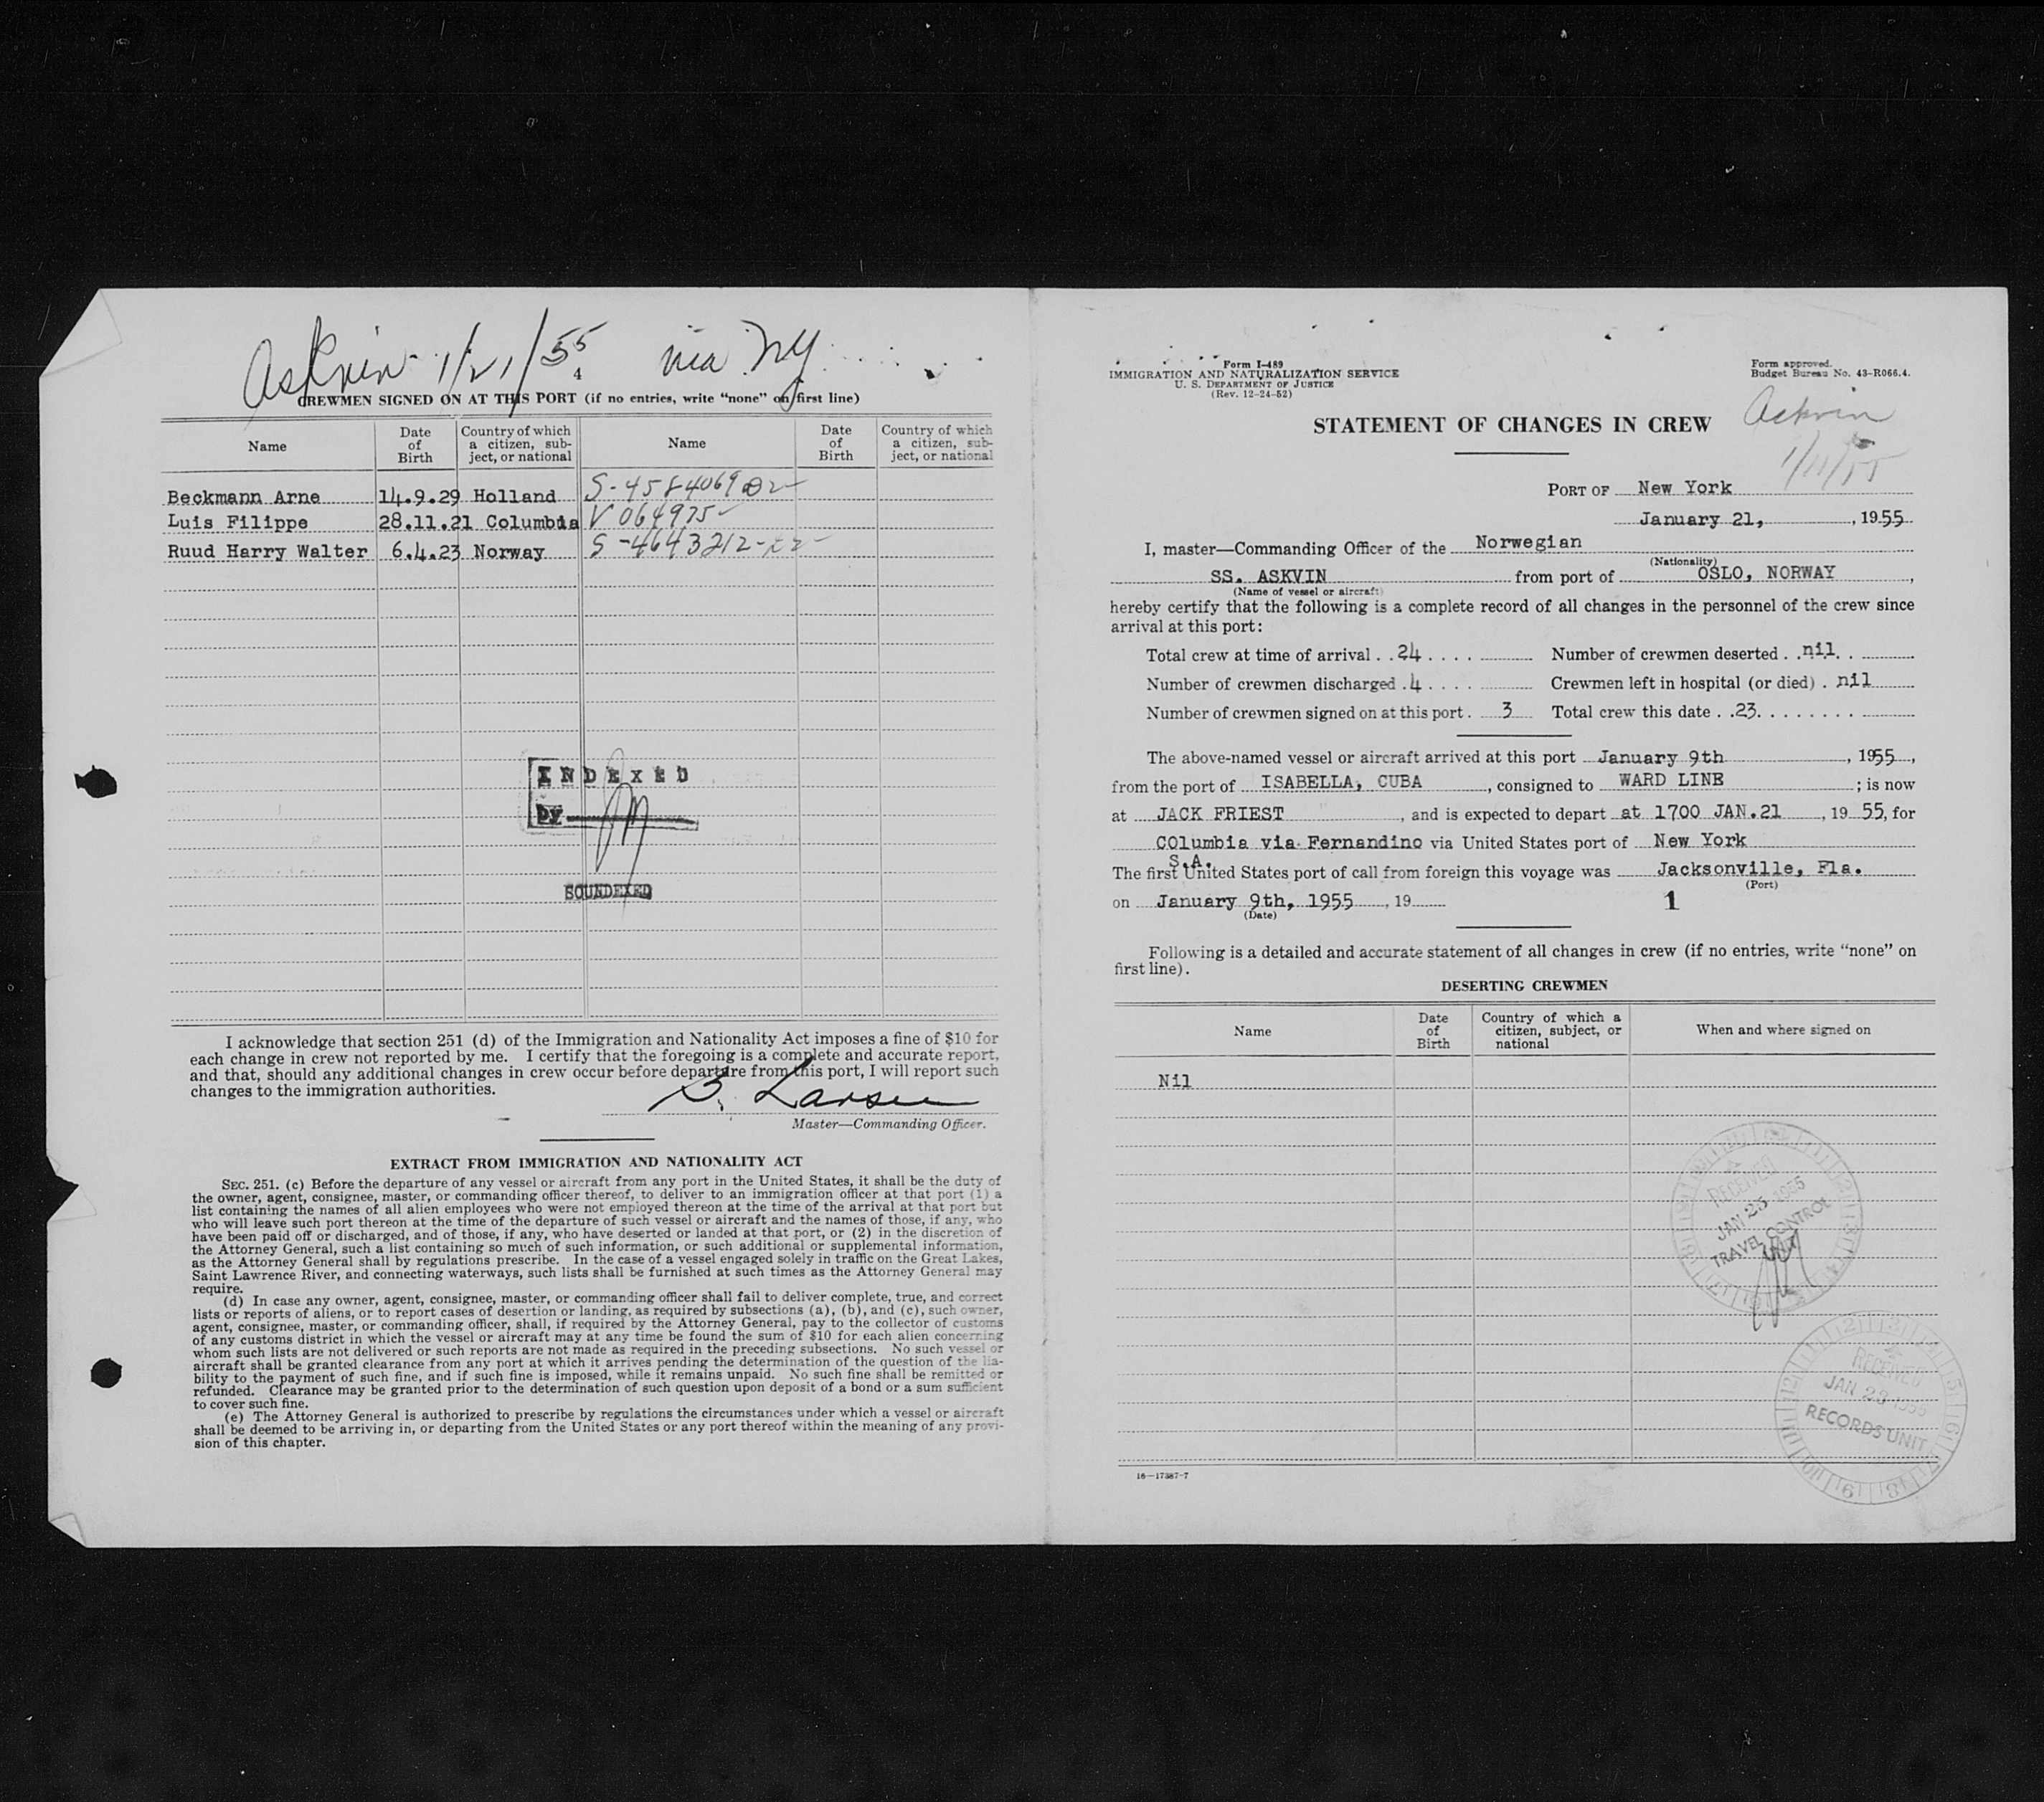 Askvin 1/21/55 via NY
4
CREWMEN SIGNED ON AT THIS PORT (if no entries, write "none" on first line)
Name
Date of Birth
Country of which a citizen, subject, or national
Name
Date of Birth
Country of which a citizen, subject, or national
Beckmann Arne 14.9.29 Holland
Luis Filippe 28.11.21 Columbia V 064975
Ruud Harry Walter 6.4.23 Norway S-4643212
INDEXED
by
SOUNDEXED
I acknowledge that section 251 (d) of the Immigration and Nationality Act imposes a fine of $10 for
each change in crew not reported by me. I certify that the foregoing is a complete and accurate report,
and that, should any additional changes in crew occur before departure from this port, I will report such
changes to the immigration authorities.
B. Larsen
Master—Commanding Officer.
EXTRACT FROM IMMIGRATION AND NATIONALITY ACT
SEC. 251. (c) Before the departure of any vessel or aircraft from any port in the United States, it shall be the duty of
the owner, agent, consignee, master, or commanding officer thereof, to deliver to an immigration officer at that port (1) a
list containing the names of all alien employees who were not employed thereon at the time of the arrival at that port but
who will leave such port thereon at the time of the departure of such vessel or aircraft and the names of those, if any, who
have been paid off or discharged, and of those, if any, who have deserted or landed at that port, or (2) in the discretion of
the Attorney General, such a list containing so much of such information, or such additional or supplemental information,
as the Attorney General shall by regulations prescribe. In the case of a vessel engaged solely in traffic on the Great Lakes,
Saint Lawrence River, and connecting waterways, such lists shall be furnished at such times as the Attorney General may
require.
(d) In case any owner, agent, consignee, master, or commanding officer shall fail to deliver complete, true, and correct
lists or reports of aliens, or to report cases of desertion or landing, as required by subsections (a), (b), and (c), such owner,
agent, consignee, master, or commanding officer, shall, if required by the Attorney General, pay to the collector of customs
of any customs district in which the vessel or aircraft may at any time be found the sum of $10 for each alien concerning
whom such lists are not delivered or such reports are not made as required in the preceding subsections. No such vessel or
aircraft shall be granted clearance from any port at which it arrives pending the determination of the question of the lia-
bility to the payment of such fine, and if such fine is imposed, while it remains unpaid. No such fine shall be remitted or
refunded. Clearance may be granted prior to the determination of such question upon deposit of a bond or a sum sufficient
to cover such fine.
(e) The Attorney General is authorized to prescribe by regulations the circumstances under which a vessel or aircraft
shall be deemed to be arriving in, or departing from the United States or any port thereof within the meaning of any provi-
sion of this chapter.
Form I-489
IMMIGRATION AND NATURALIZATION SERVICE
U. S. DEPARTMENT OF JUSTICE
(Rev. 12-24-52)
Form approved.
Budget Bureau No. 43-R066.4.
STATEMENT OF CHANGES IN CREW
Askvin
1/11/55
PORT OF New York
January 21, , 1955
I, master—Commanding Officer of the Norwegian
(Nationality)
SS. ASKVIN from port of OSLO, NORWAY ,
(Name of vessel or aircraft)
hereby certify that the following is a complete record of all changes in the personnel of the crew since
arrival at this port:
Total crew at time of arrival . . 24 . . . . Number of crewmen deserted . . nil . .
Number of crewmen discharged . 4 . . . . Crewmen left in hospital (or died) . nil
Number of crewmen signed on at this port . 3 Total crew this date . . 23 . . . . . . . .
The above-named vessel or aircraft arrived at this port January 9th , 1955 ,
from the port of ISABELLA, CUBA , consigned to WARD LINE ; is now
at JACK FRIEST , and is expected to depart at 1700 JAN.21 , 19 55, for
COlumbia via Fernandino via United States port of New York
S.A.
The first United States port of call from foreign this voyage was Jacksonville, Fla.
(Port)
on January 9th, 1955 , 19
(Date)
1
Following is a detailed and accurate statement of all changes in crew (if no entries, write "none" on
first line).
DESERTING CREWMEN
Name
Date of Birth
Country of which a citizen, subject, or national
When and where signed on
Nil
RECEIVED
JAN 25 1955
TRAVEL CONTROL
UNIT
RECEIVED
JAN 28 1955
RECORDS UNIT
16—17387-7